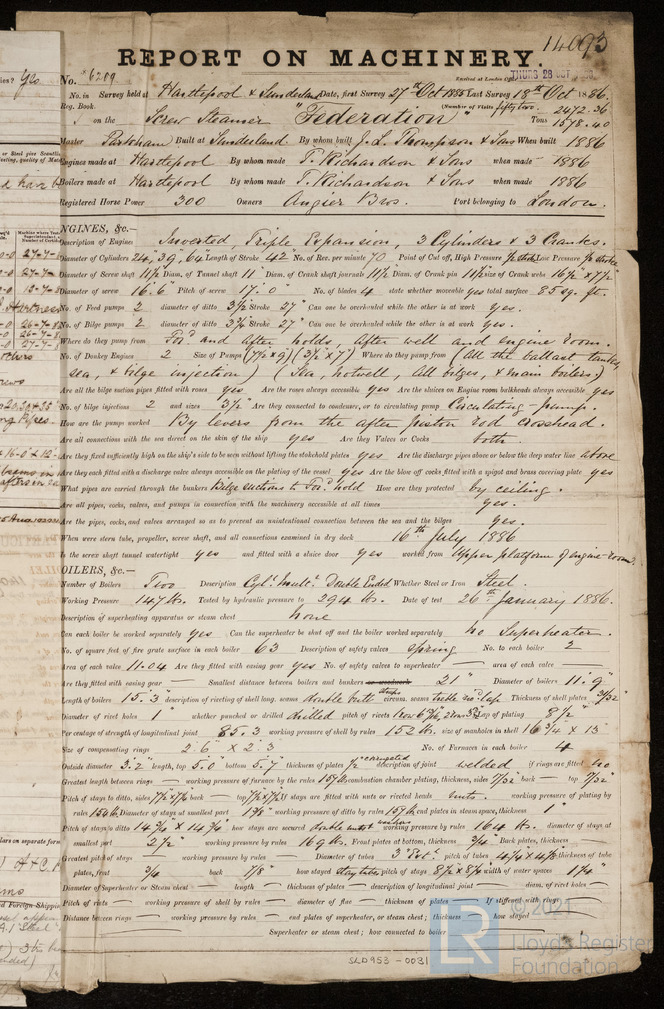 14093
REPORT ON MACHINERY.
No. 6289
Received at London Office THURS 28 OCT
No. in Survey held at Hartlepool & Sunderland Date, first Survey 27th Oct 1885 Last Survey 18th Oct 1886
Reg. Book. (Number of Visits fifty two.
on the Screw Steamer "Federation" Tons 2472.36
1578.40
Master Built at Sunderland By whom built J. L. Thompson & Sons When built 1886
Engines made at Hartlepool By whom made T. Richardson & Sons when made 1886
Boilers made at Hartlepool By whom made T. Richardson & Sons when made 1886
Registered Horse Power 300 Owners Angier Bros. Port belonging to London.
NGINES, &c.—
Description of Engines Inverted, Triple Expansion, 3 Cylinders & 3 Cranks.
Diameter of Cylinders 24, 39, 64 Length of Stroke 42 No. of Rev. per minute 70 Point of Cut off, High Pressure Low Pressure
Diameter of Screw shaft 11½ Diam. of Tunnel shaft 11" Diam. of Crank shaft journals 11½ Diam. of Crank pin 11½ size of Crank webs 16½ × 7½"
Diameter of screw 16.6 Pitch of screw 17.0" No. of blades 4 state whether moveable yes total surface 85 sq. ft.
No. of Feed pumps 2 diameter of ditto 3½ Stroke 27" Can one be overhauled while the other is at work yes.
No. of Bilge pumps 2 diameter of ditto Stroke 27" Can one be overhauled while the other is at work yes.
Where do they pump from For'd and after holds, after well and engine room.
No. of Donkey Engines 2 Size of Pumps (7½ × 9) (3½ × 7) Where do they pump from (All the ballast tanks,
sea, & bilge injection) (Sea, hotwell, all bilges, & main boilers)
Are all the bilge suction pipes fitted with roses yes Are the roses always accessible yes Are the sluices on Engine room bulkheads always accessible yes
No. of bilge injections 2 and sizes 3½ Are they connected to condenser, or to circulating pump Circulating-pump.
How are the pumps worked By levers from the after piston rod crosshead.
Are all connections with the sea direct on the skin of the ship yes Are they Valves or Cocks both.
Are they fixed sufficiently high on the ship's side to be seen without lifting the stokehold plates yes Are the discharge pipes above or below the deep water line above
Are they each fitted with a discharge valve always accessible on the plating of the vessel yes Are the blow off cocks fitted with a spigot and brass covering plate yes
What pipes are carried through the bunkers Bilge suctions to For'd hold How are they protected by ceiling.
Are all pipes, cocks, valves, and pumps in connection with the machinery accessible at all times yes.
Are the pipes, cocks, and valves arranged so as to prevent an unintentional connection between the sea and the bilges yes.
When were stern tube, propeller, screw shaft, and all connections examined in dry dock 16th July 1886
Is the screw shaft tunnel watertight yes and fitted with a sluice door yes worked from Upper platform of engine-room.
OILERS, &c.—
Number of Boilers Two Description Double Ended Whether Steel or Iron Steel.
Working Pressure 147 lbs. Tested by hydraulic pressure to 294 lbs. Date of test 26th January 1886.
Description of superheating apparatus or steam chest none
Can each boiler be worked separately yes. Can the superheater be shut off and the boiler worked separately no Superheater.
No. of square feet of fire grate surface in each boiler 63 Description of safety valves spring No. to each boiler 2
Area of each valve 11.04 Are they fitted with easing gear yes No. of safety valves to superheater — area of each valve —
Are they fitted with easing gear — Smallest distance between boilers and bunkers or woodwork 21" Diameter of boilers 11.9"
Length of boilers 15.3" description of riveting of shell long. seams double butt straps circum. seams treble riv. lap Thickness of shell plates
Diameter of rivet holes 1" whether punched or drilled drilled pitch of rivets Lap of plating 8½
Per centage of strength of longitudinal joint 85.3 working pressure of shell by rules 152 lbs. size of manholes in shell 16¾ × 13"
Size of compensating rings 2.6 × 2.3 No. of Furnaces in each boiler 4
Outside diameter 3.2" length, top 5.0" bottom 5.7" thickness of plates ½" corrugated description of joint welded if rings are fitted no
Greatest length between rings — working pressure of furnace by the rules 157 lbs combustion chamber plating, thickness, sides back — top
Pitch of stays to ditto, sides back — top If stays are fitted with nuts or riveted heads nuts. working pressure of plating by
rules 154 lbs Diameter of stays at smallest part working pressure of ditto by rules 157 lbs end plates in steam space, thickness 1"
Pitch of stays to ditto 14¾ × 14¾ how stays are secured double nuts & washers working pressure by rules 164 lbs. diameter of stays at
smallest part 2½" working pressure by rules 169 lbs. Front plates at bottom, thickness ¾" Back plates, thickness —
Greatest pitch of stays — working pressure by rules — Diameter of tubes 3" Ext. pitch of tubes thickness of tube
plates, front ¾ back ⅞" how stayed stay tubes pitch of stays width of water spaces 1¼"
Diameter of Superheater or Steam chest — length — thickness of plates — description of longitudinal joint — diam. of rivet holes —
Pitch of rivets — working pressure of shell by rules — diameter of flue — thickness of plates — If stiffened with rings —
Distance between rings — working pressure by rules — end plates of superheater, or steam chest; thickness — how stayed —
Superheater or steam chest; how connected to boiler —
SLD953-0031
© 2021
Lloyd's Register
Foundation